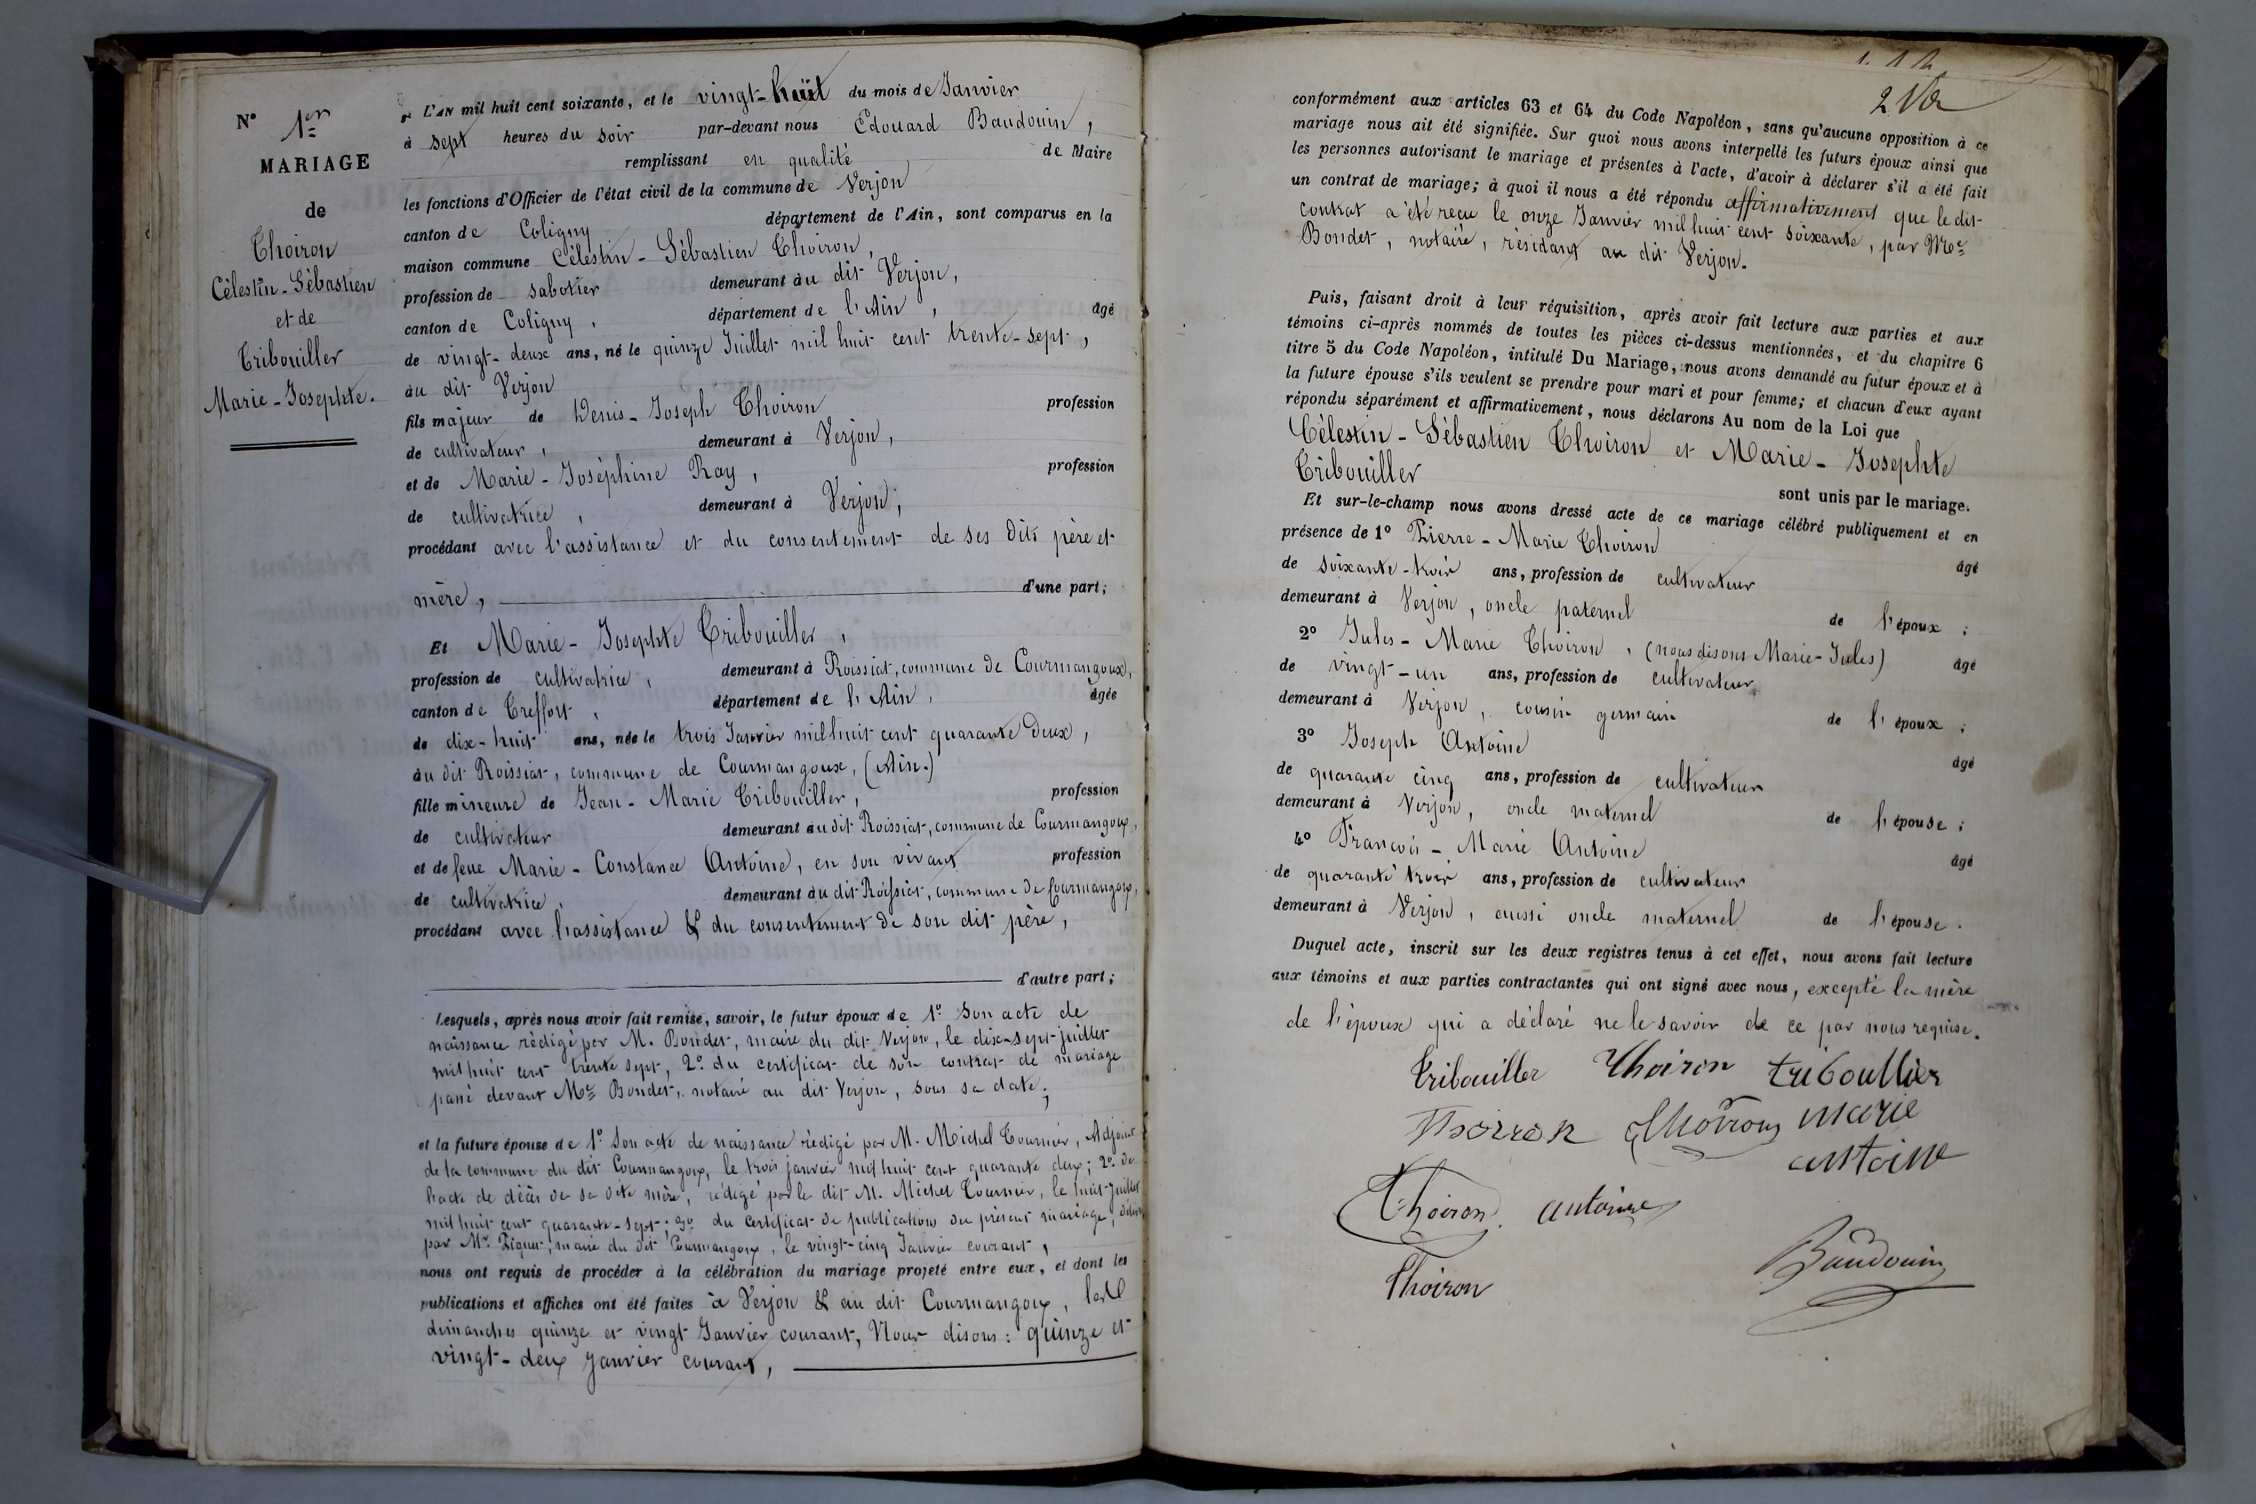 N° 1er
MARIAGE
de
Thoiron
Célestin-Sébastien
et de
Tribouiller
Marie-Josephte.
L'AN mil huit cent soixante, et le vingt-huit du mois de Janvier
à sept heures du soir par-devant nous Edouard Baudouin,
remplissant en qualité de Maire
les fonctions d'Officier de l'état civil de la commune de Verjon
canton de Coligny département de l'Ain, sont comparus en la
maison commune Célestin-Sébastien Thoiron,
profession de sabotier demeurant au dit Verjon,
canton de Coligny, département de l'Ain, âgé
de vingt-deux ans, né le quinze Juillet mil huit cent trente-sept,
au dit Verjon
fils majeur de Denis-Joseph Thoiron profession
de cultivateur, demeurant à Verjon,
et de Marie-Joséphine Ray, profession
de cultivatrice, demeurant à Verjon,
procédant avec l'assistance et du consentement de ses dits père et
mère, d'une part;
Et Marie-Josephte Tribouiller,
profession de cultivatrice, demeurant à Roissiat, commune de Courmangoux,
canton de Treffort, département de l'Ain, âgée
de dix-huit ans, née le trois Janvier mil huit cent quarante deux,
au dit Roissiat, commune de Courmangoux, (Ain.)
fille mineure de Jean-Marie Tribouiller, profession
de cultivateur demeurant au dit Roissiat, commune de Courmangoux,
et de feue Marie-Constance Antoine, en son vivant profession
de cultivatrice, demeurant au dit Roissiat, commune de Courmangoux,
procédant avec l'assistance & du consentement de son dit père,
d'autre part;
Lesquels, après nous avoir fait remise, savoir, le futur époux de 1° Son acte de
naissance rédigé par M. Bondet, maire du dit Verjon, le dix-sept juillet
mil huit cent trente sept, 2° du certificat de son contrat de mariage
passé devant Me Bondet, notaire au dit Verjon, sous sa date;
et la future épouse de 1° Son acte de naissance rédigé par M. Michel Tournier, Adjoint
de la commune du dit Courmangoux, le trois janvier mil huit cent quarante deux; 2° de
l'acte de décès de sa dite mère, rédigé par le dit M. Michel Tournier, le huit juillet
mil huit cent quarante-sept; 3° du certificat de publication du présent mariage, délivré
par Mr. Piquet, maire du dit Courmangoux, le vingt-cinq Janvier courant,
nous ont requis de procéder à la célébration du mariage projeté entre eux, et dont les
publications et affiches ont été faites à Verjon & au dit Courmangoux, les
dimanches quinze et vingt Janvier courant, Nous disons: quinze et
vingt-deux janvier courant,
2
conformément aux articles 63 et 64 du Code Napoléon, sans qu'aucune opposition à ce
mariage nous ait été signifiée. Sur quoi nous avons interpellé les futurs époux ainsi que
les personnes autorisant le mariage et présentes à l'acte, d'avoir à déclarer s'il a été fait
un contrat de mariage; à quoi il nous a été répondu affirmativement que le dit
contrat a été reçu le onze Janvier mil huit cent soixante, par Me
Bondet, notaire, résidant au dit Verjon.
Puis, faisant droit à leur réquisition, après avoir fait lecture aux parties et aux
témoins ci-après nommés de toutes les pièces ci-dessus mentionnées, et du chapitre 6
titre 5 du Code Napoléon, intitulé Du Mariage, nous avons demandé au futur époux et à
la future épouse s'ils veulent se prendre pour mari et pour femme; et chacun d'eux ayant
répondu séparément et affirmativement, nous déclarons Au nom de la Loi que
Célestin-Sébastien Thoiron et Marie-Josephte
Tribouiller sont unis par le mariage.
Et sur-le-champ nous avons dressé acte de ce mariage célébré publiquement et en
présence de 1° Pierre-Marie Thoiron âgé
de soixante-trois ans, profession de cultivateur
demeurant à Verjon, oncle paternel de l'époux;
2° Jules-Marie Thoiron, (nous disons Marie-Jules) âgé
de vingt-un ans, profession de cultivateur
demeurant à Verjon, cousin germain de l'époux;
3° Joseph Antoine âgé
de quarante cinq ans, profession de cultivateur
demeurant à Verjon, oncle maternel de l'épouse;
4° François-Marie Antoine âgé
de quarante trois ans, profession de cultivateur
demeurant à Verjon, aussi oncle maternel de l'épouse.
Duquel acte, inscrit sur les deux registres tenus à cet effet, nous avons fait lecture
aux témoins et aux parties contractantes qui ont signé avec nous, excepté la mère
de l'époux qui a déclaré ne le savoir de ce par nous requise.
Tribouiller Thoiron triboullier
Thoiron Thoiron marie
antoine
Thoiron antoine
Baudouin
Thoiron